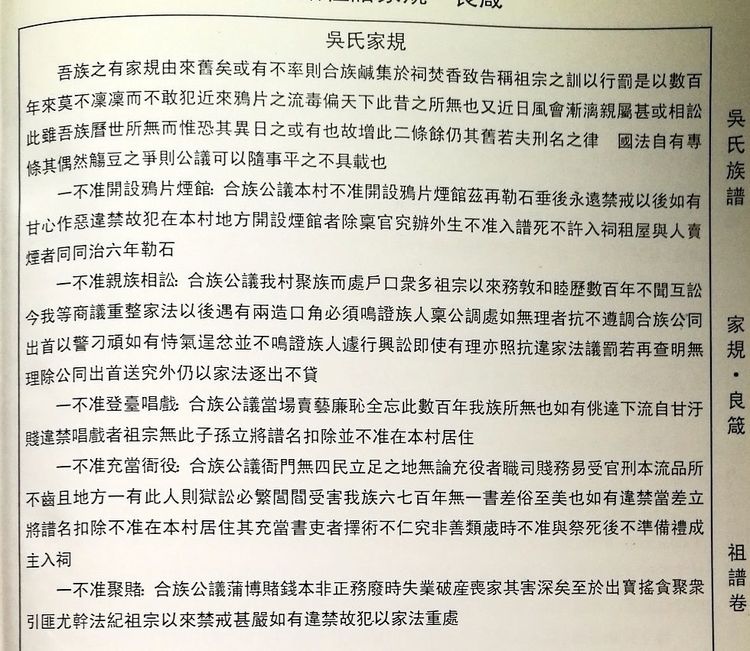 吳氏家規
吾族之有家規由來舊矣或有不率則合族鹹集於祠焚香致告稱祖宗之訓以行罰是以數百
年來莫不凜凜而不敢犯近來鴉片之流毒偏天下此昔之所無也又近日風會漸漓親屬甚或相訟
此雖吾族曆世所無而惟恐其異日之或有也故增此二條餘仍其舊若夫刑名之律　國法自有專
條其偶然觴豆之爭則公議可以隨事平之不具載也
一不准開設鴉片煙館：合族公議本村不准開設鴉片煙館茲再勒石垂後永遠禁戒以後如有
甘心作惡違禁故犯在本村地方開設煙館者除稟官究辦外生不准入譜死不許入祠租屋與人賣
煙者同同治六年勒石
一不准親族相訟：合族公議我村聚族而處戶口衆多祖宗以來務敦和睦歷數百年不聞互訟
今我等商議重整家法以後遇有兩造口角必須鳴證族人稟公調處如無理者抗不遵調合族公同
出首以警刁頑如有恃氣逞忿並不鳴證族人遽行興訟即使有理亦照抗違家法議罰若再查明無
理除公同出首送究外仍以家法逐出不貸
一不准登臺唱戲：合族公議當場賣藝廉恥全忘此數百年我族所無也如有佻達下流自甘汙
賤違禁唱戲者祖宗無此子孫立將譜名扣除並不准在本村居住
一不准充當衙役：合族公議衙門無四民立足之地無論充役者職司賤務易受官刑本流品所
不齒且地方一有此人則獄訟必繁閭閻受害我族六七百年無一書差俗至美也如有違禁當差立
將譜名扣除不准在本村居住其充當書吏者擇術不仁究非善類歲時不准與祭死後不準備禮成
主入祠
一不准聚賭：合族公議蒲博賭錢本非正務廢時失業破産喪家其害深矣至於出寶搖貪聚衆
引匪尤幹法紀祖宗以來禁戒甚嚴如有違禁故犯以家法重處
吳氏族譜
家規·良箴
祖譜卷